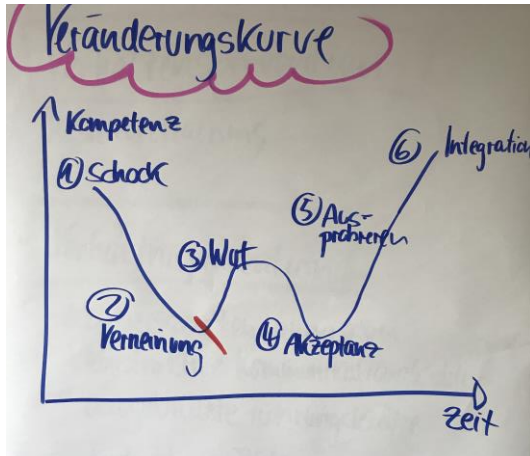 Veränderungskurve
Kompetenz
① Schock
② Verneinung
③ Wut
④ Akzeptanz
⑤ Aus-
probieren
⑥ Integration
Zeit